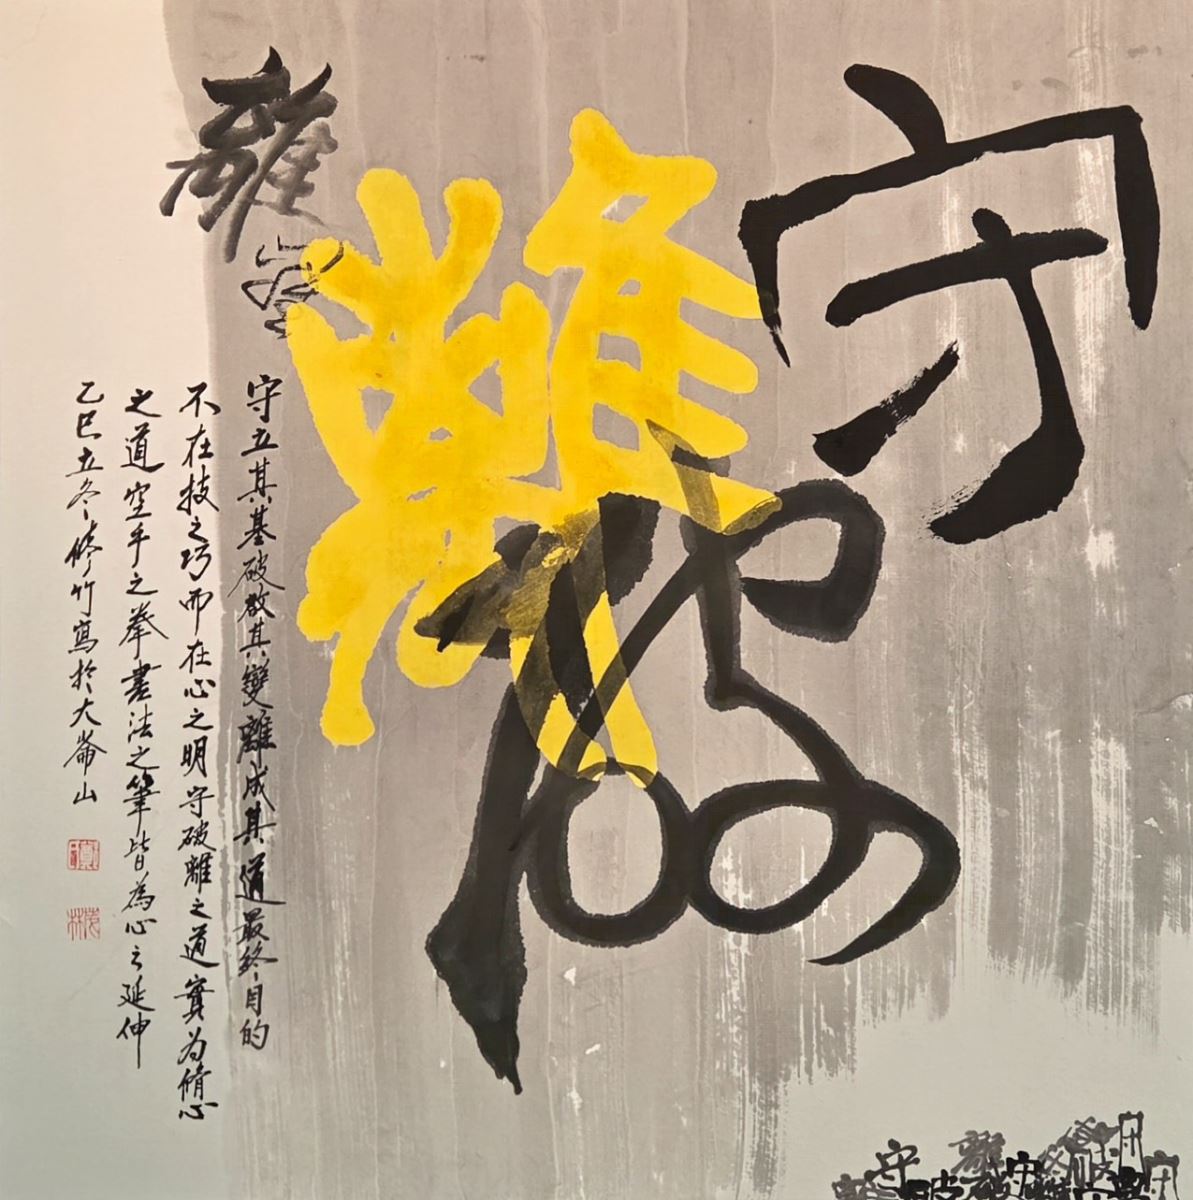 守
破
離
守立其基破啟其變離成其道最終目的
不在技之巧而在心之明守破離之道實為修心
之道空手之拳書法之筆皆為心之延伸
乙巳立冬修竹寫於大崙山
守
離
守
破
守
守